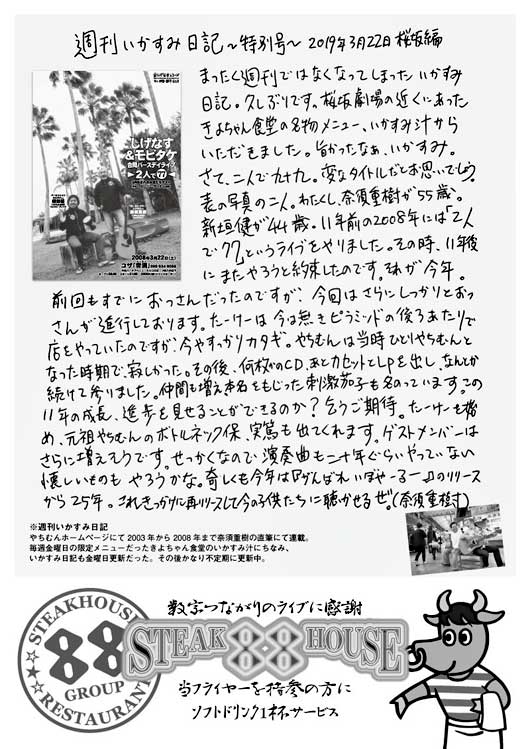 週刊いかすみ日記〜特別号〜 2019年3月22日 桜坂編
まったく週刊ではなくなってしまった いかすみ
日記。久しぶりです。桜坂劇場の近くにあった
きよちゃん食堂の名物メニュー、いかすみ汁から
いただきました。旨かったなぁ、いかすみ。
さて、二人で九十九。変なタイトルだとお思いでしょう。
表の写真の二人。わたくし、奈須重樹が55歳。
新垣健が44歳。11年前の2008年には『2人
で77』というライブをやりました。その時、11年後
にまたやろうと約束したのです。それが今年。
前回もすでにおっさんだったのですが、今回はさらにしっかりとおっ
さんが進行しております。たーけーは今は無きピラミッドの後ろあたりで
店をやっていたのですが、今やすっかりカタギ。やちむんは当時ひとりやちむんと
なった時期で、寂しかった。その後、何枚かのCD、あとカセットとLPを出し、なんとか
続けて参りました。仲間も増え、本名をもじった刺激茄子も名のっています。この
11年の成長、進歩を見せることができるのか?乞うご期待。たーけーも
め、元祖やちむんのボトルネック保、実篤も出てくれます。ゲストメンバーは
さらに増えそうです。せっかくなので演奏曲も二十年ぐらいやっていない
懐しいものも やろうかな。奇しくも今年は『がんばれ いぢゃーるー』のリリース
から25年。これきっかけに再リリースして今の子供たちに聴かせるぜ。(奈須重樹)
しげなす
&モヒタケ
合同バースデイライブ
2人で77
2008年3月22日(土)
※週刊いかすみ日記
やちむんホームページにて2003年から2008年まで奈須重樹の直筆にて連載。
毎週金曜日の限定メニューだったきよちゃん食堂のいかすみ汁にちなみ、
いかすみ日記も金曜日更新だった。その後かなり不定期に更新中。
数字つながりのライブに感謝
STEAKHOUSE
88
GROUP
RESTAURANT
STEAK 88 HOUSE
当フライヤーを持参の方に
ソフトドリンク1杯サービス